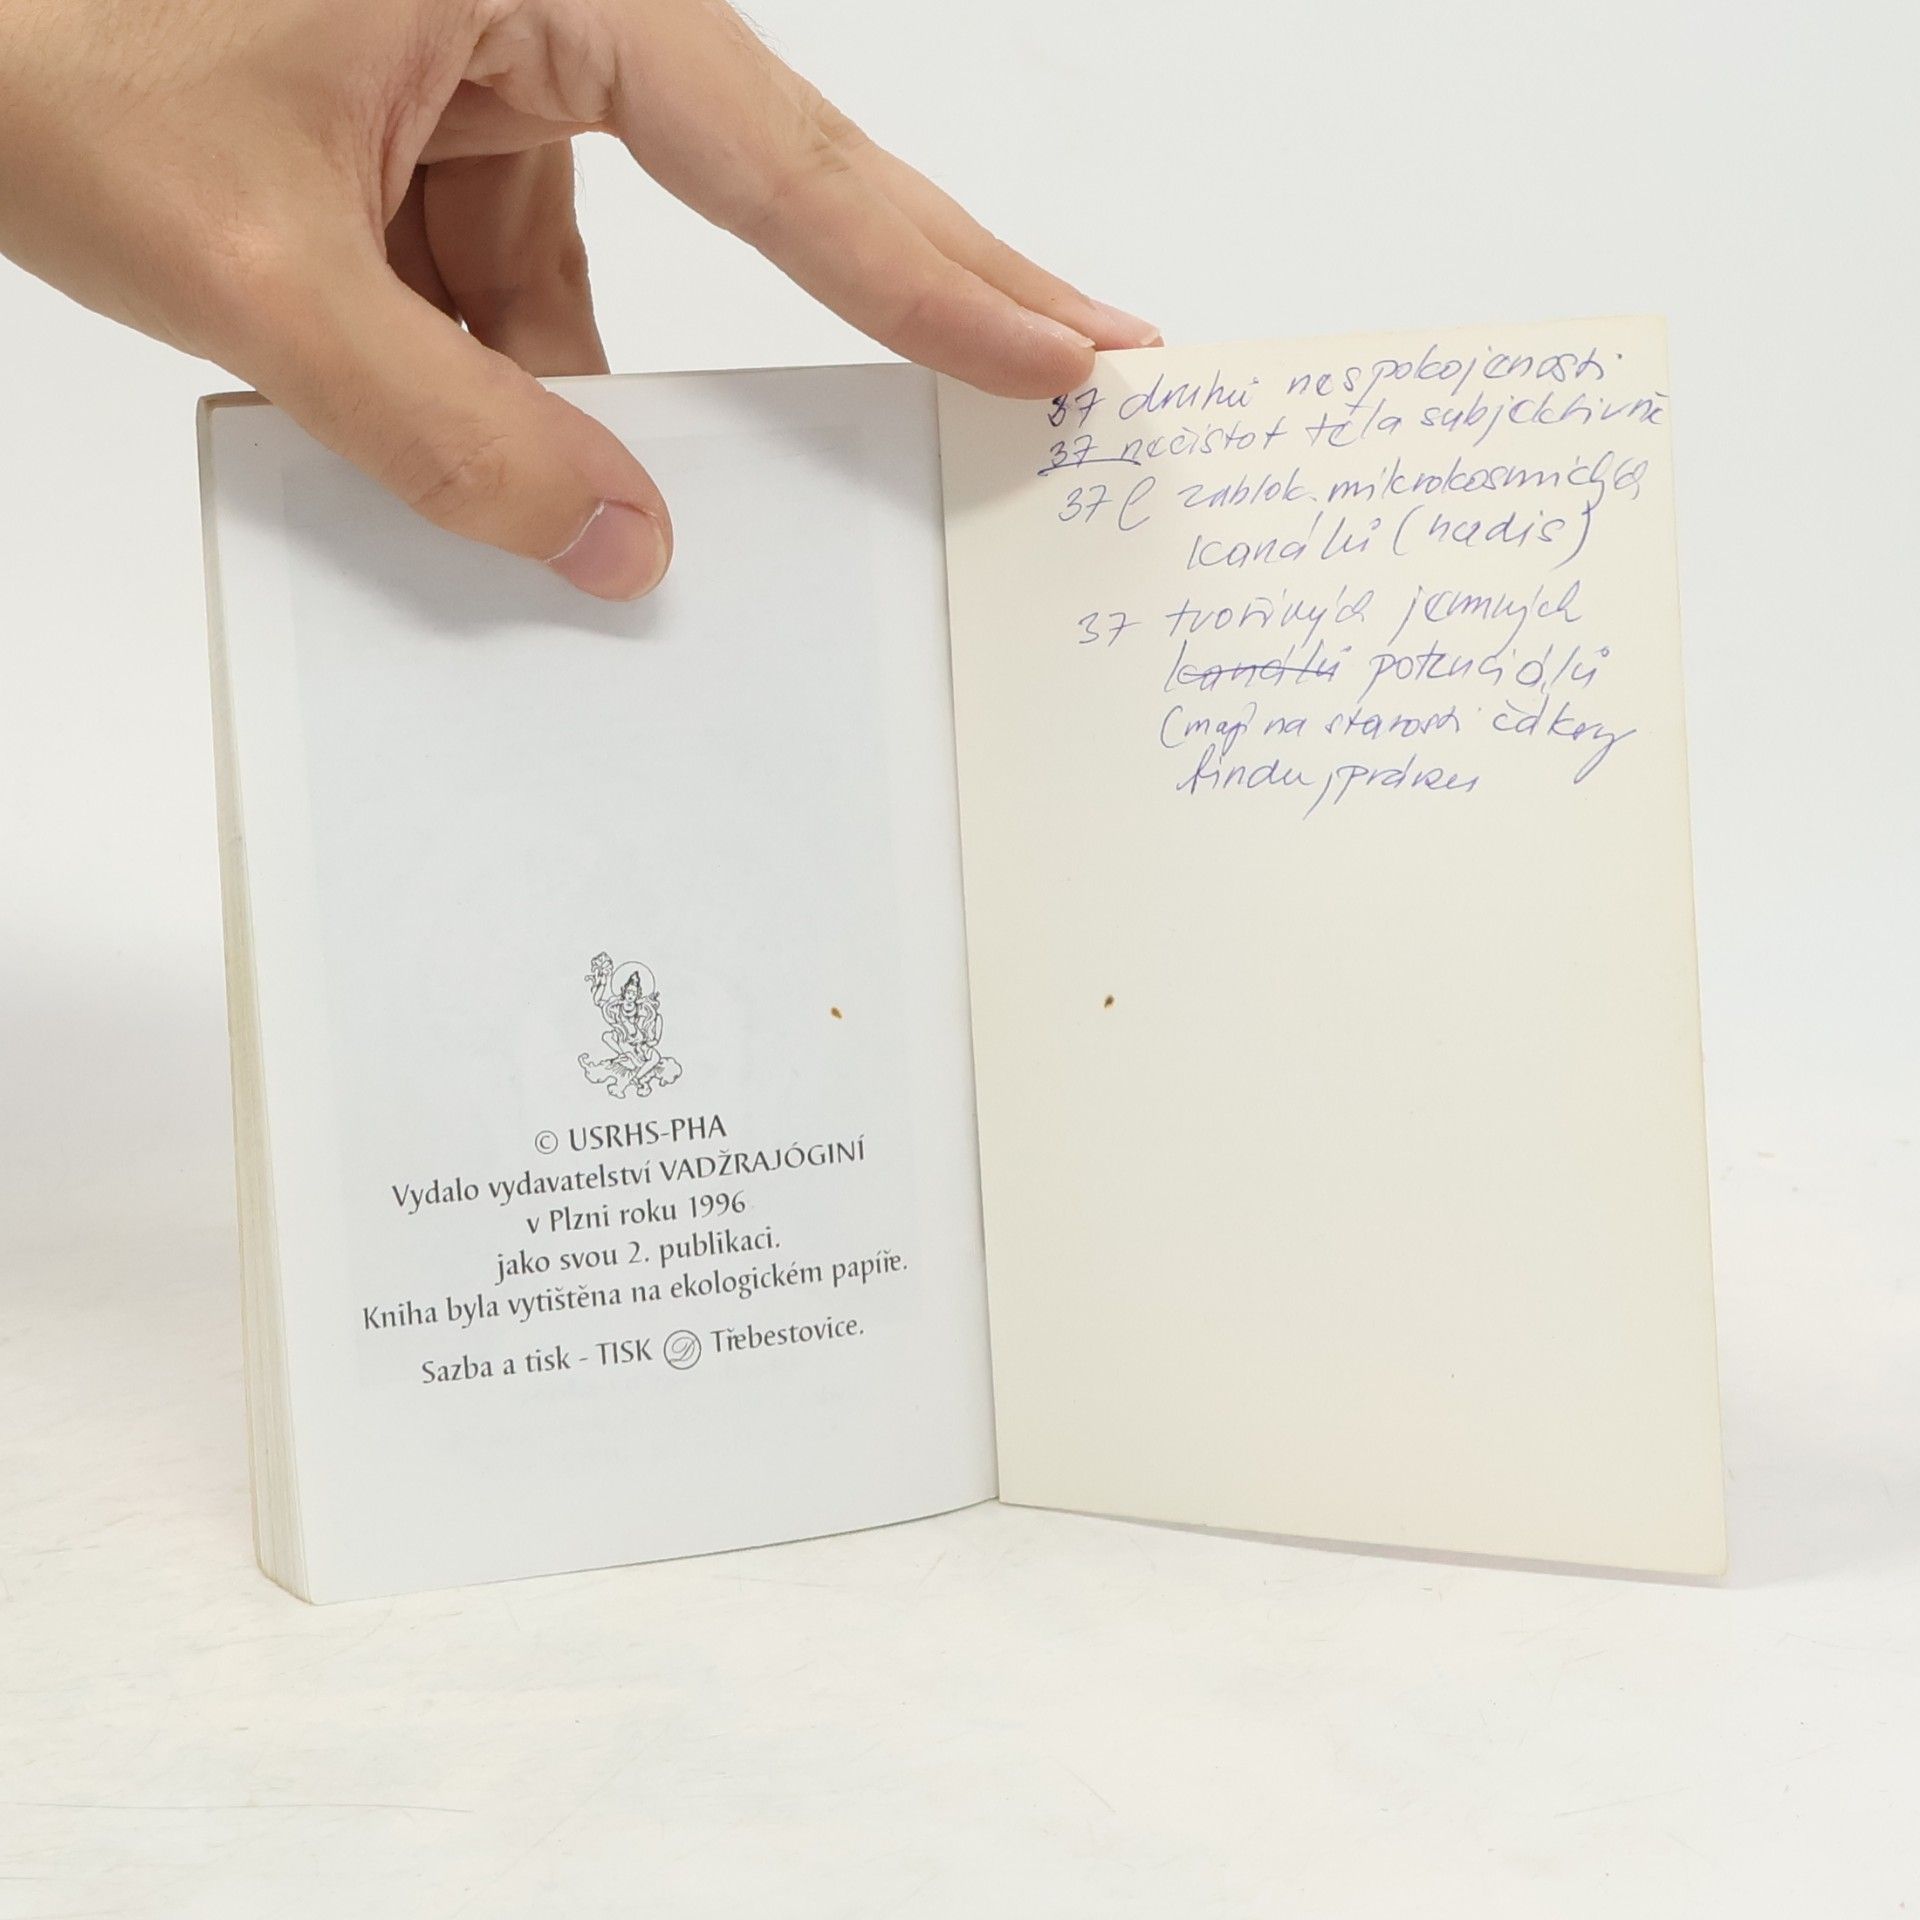 © USRHS-PHA
Vydalo vydavatelství VADŽRAJÓGINÍ
v Plzni roku 1996
jako svou 2. publikaci.
Kniha byla vytištěna na ekologickém papíře.
Sazba a tisk - TISK Třebestovice.
37 druhů nespokojenosti
37 nečistot těla subjektivně
37 zablok. mikrokosmických
kanálů (nadis)
37 tvořivých jemných
kanálů potenciálů
(mají na starosti čakry
bindu, pránu